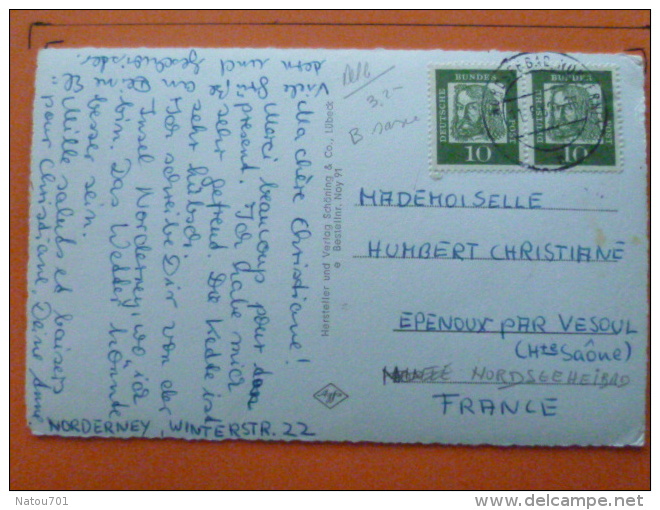 Ma chère Christiane!
Merci beaucoup pour ton
présent. Ich habe mich
sehr gefreut. Die Kette ist
sehr hübsch.
Ich schreibe Dir von der
Insel Norderney, wo ich
bin. Das Wetter könnte
besser sein.
Mille saluts et baisers
pour Christiane, Deine
Viele
und
Geschwister.
NORDERNEY, WINTERSTR. 22
Hersteller und Verlag Schöning & Co., Lübeck
Bestellnr. Noy 91
Agfa
3,-
DEUTSCHE BUNDESPOST
10
DEUTSCHE BUNDESPOST
10
MADEMOISELLE
HUMBERT CHRISTIANE
EPENOUX PAR VESOUL
(Hte Saône)
NORDSEEHEILBAD
FRANCE
Natou701